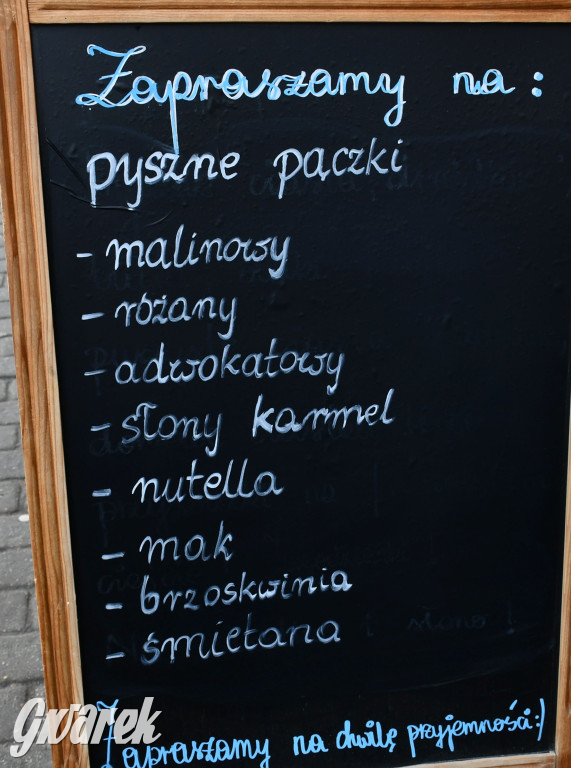 Zapraszamy na:
pyszne pączki
- malinowy
- różany
- adwokatowy
- słony karmel
- nutella
- mak
- brzoskwinia
- śmietana
Zapraszamy na chwilę przyjemności:)
Gwarek